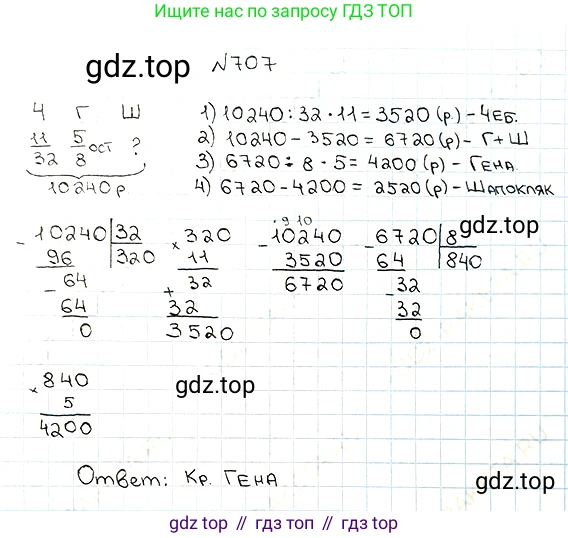 Ищите нас по запросу ГДЗ ТОП
gdz.top №707
Ч Г Ш
11/32 5/8 ост ?
10240р
1) 10240:32·11=3520(р.)-ЧЕБ.
2) 10240-3520=6720(р)-Г+Ш
3) 6720÷8·5=4200(р)-ГЕНА
4) 6720-4200=2520(р)-ШАПОКЛЯК
gdz.top
10240 32
- 96 320
64
- 64
0
320
× 11
32
+ 32
3520
9 10
- 10240
3520
6720
- 6720 8
64 840
- 32
32
0
840
× 5
4200
gdz.top
Ответ: Кр. ГЕНА
gdz.top
gdz.top // гдз топ // гдз.top